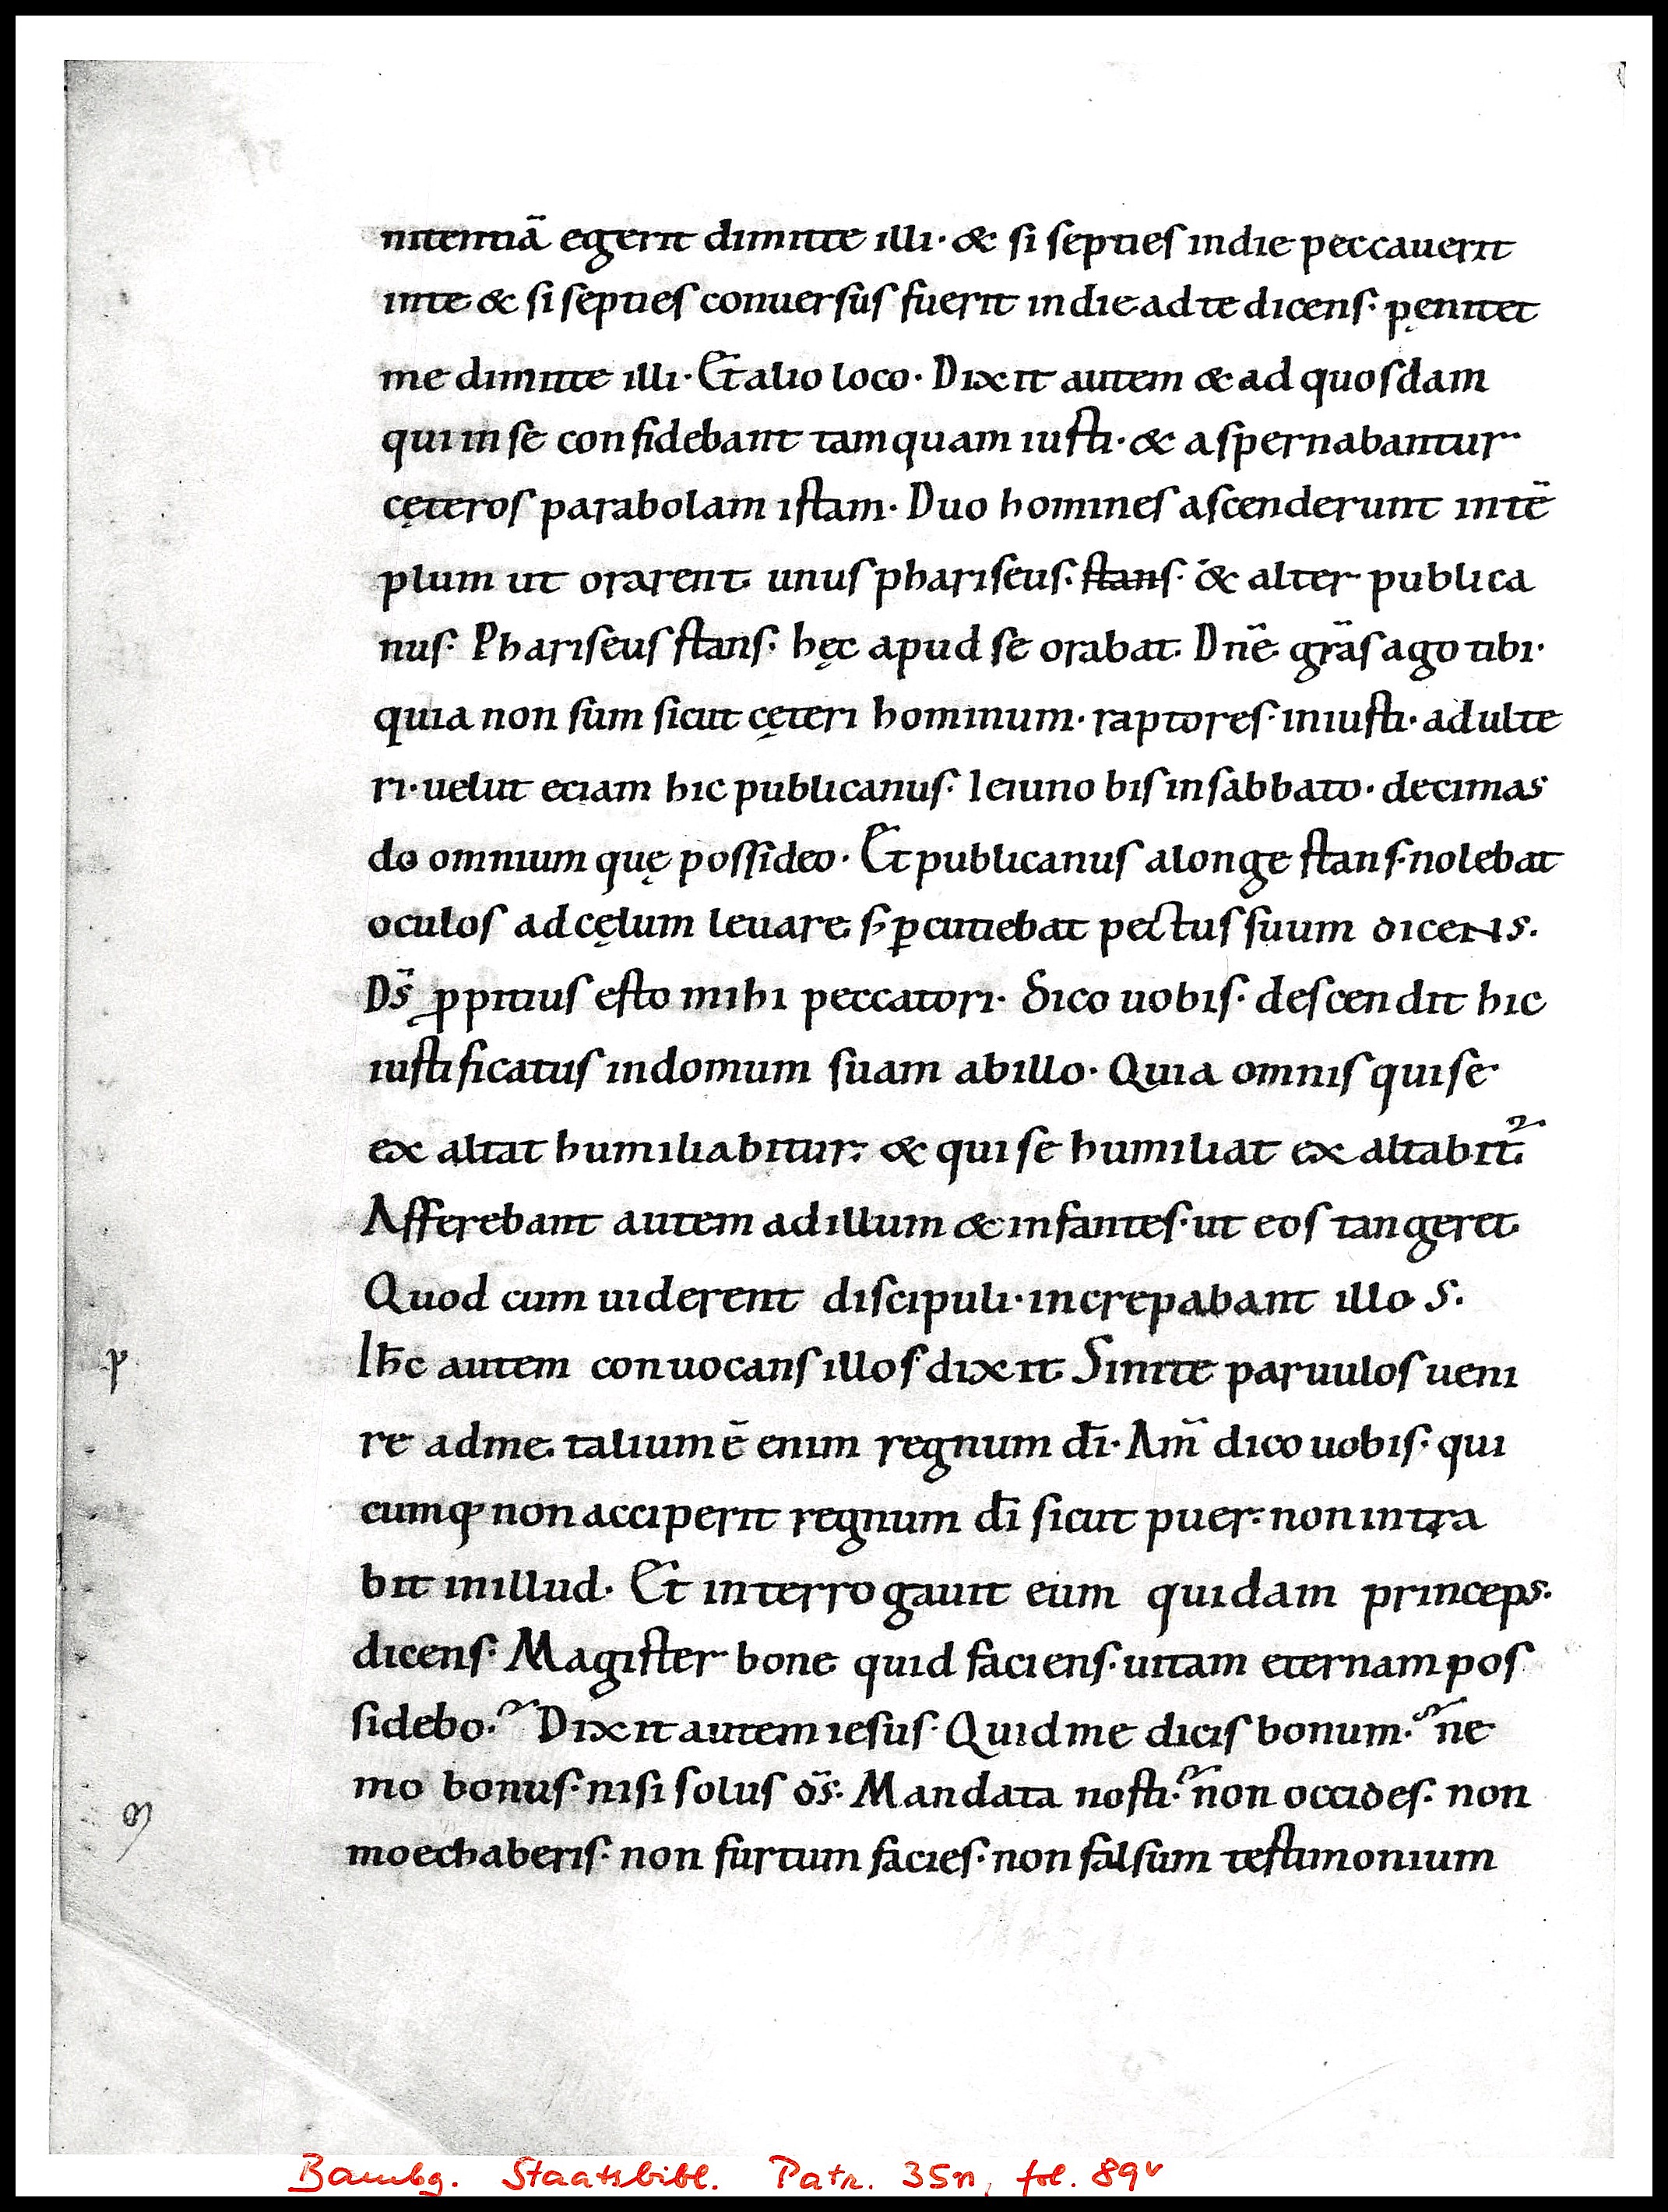 nitentiā egerit dimitte illi· & si septies indie peccauerit
inte & si septies conuersus fuerit indie adte dicens· pęnitet
me dimitte illi· Et alio loco· Dixit autem & ad quosdam
qui inse confidebant tamquam iusti· & aspernabantur
cęteros parabolam istam· Duo homines ascenderunt intē
plum ut orarent· unus phariseus· stans· & alter publica
nus· Phariseus stans· hęc apud se orabat· Dn̄e grās ago tibi·
quia non sum sicut cęteri hominum· raptores· iniusti· adulte
ri· uelut eciam hic publicanus· Ieiuno bis insabbato· decimas
do omnium quę possideo· Et publicanus alonge stans· nolebat
oculos ad cęlum leuare· s; ꝑcutiebat pectus suum dicens.
Ds̄ ꝓpitius esto mihi peccatori· Dico uobis· descendit hic
iustificatus indomum suam abillo· Quia omnis quise
exaltat humiliabitur· & quise humiliat exaltabit᷑
Afferebant autem adillum & infantes· ut eos tangeret·
Quod cum uiderent discipuli· increpabant illos.
Ih̄c autem conuocans illos· dixit· Sinite paruulos ueni
re adme· talium ē enim regnum dī· Am̄ dico uobis· qui
cumq; non acciperit regnum dī sicut puer· non intra
bit inillud· Et interrogauit eum quidam princeps·
dicens· Magister bone quid faciens· uitam eternam pos
sidebo·? Dixit autem iesus· Quid me dicis bonum·? ne
mo bonus· nisi solus ds̄· Mandata nosti·? non occides· non
moechaberis· non furtum facies· non falsum testimonium
Bambg. Staatsbibl. Patr. 35n, fol. 89v